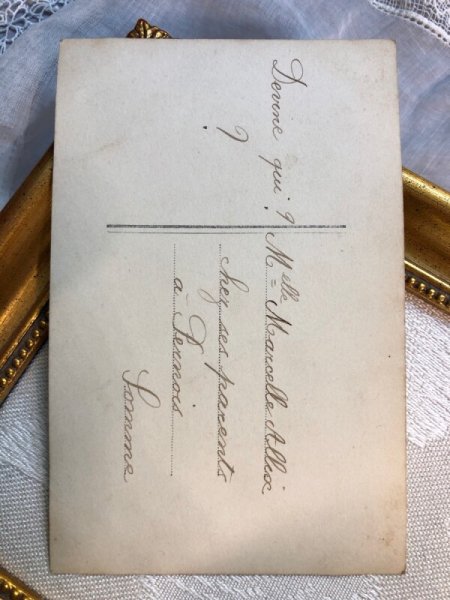 Devine qui ?
?
Melle Marcelle Allix
chez ses parents
à Pernois
Somme